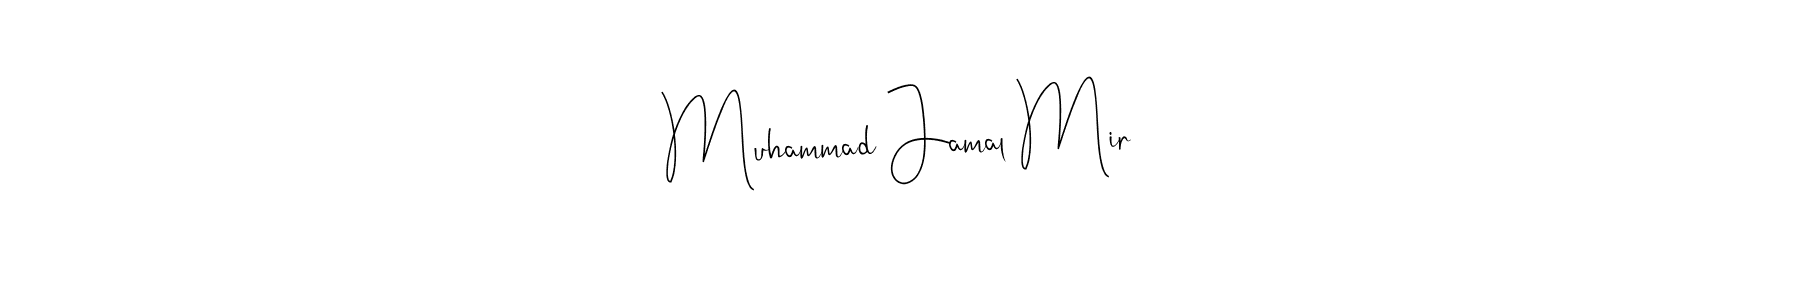 Muhammad Jamal Mir